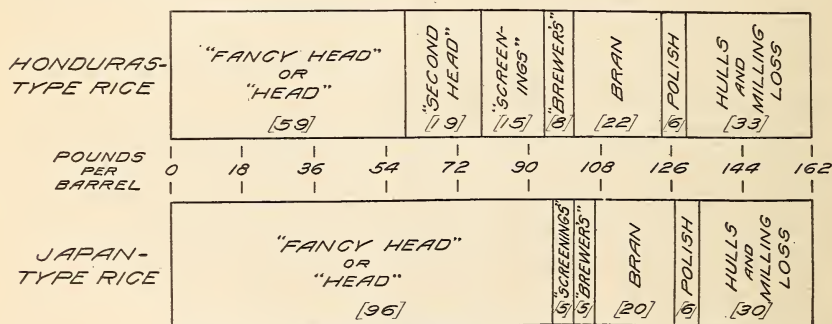 HONDURAS-
TYPE RICE
"FANCY HEAD"
OR
"HEAD"
[59]
"SECOND
HEAD"
[19]
"SCREEN-
INGS"
[15]
"BREWER'S"
[8]
BRAN
[22]
POLISH
[6]
HULLS
AND
MILLING
LOSS
[33]
POUNDS
PER
BARREL
0 18 36 54 72 90 108 126 144 162
JAPAN-
TYPE RICE
"FANCY HEAD"
OR
"HEAD"
[96]
"SCREENINGS"
[5]
"BREWER'S"
[5]
BRAN
[20]
POLISH
[6]
HULLS
AND
MILLING
LOSS
[30]